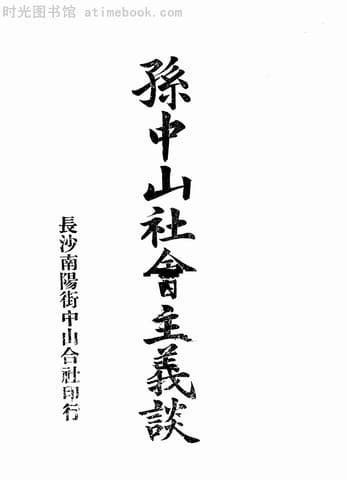 时光图书馆 - atimebook.com
孫中山社會主義談
長沙南陽街中山合社印行